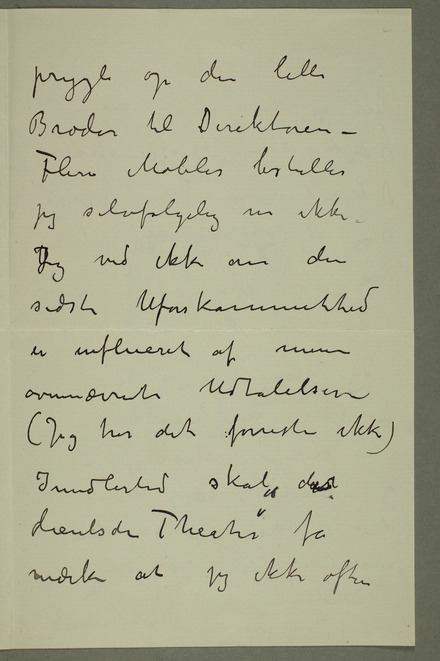 prygle op den lille
Broder til Direktøren –
Flere Møbler bestilles
jeg selvfølgelig nu ikke.
Jeg ved ikke om den
sidste Uforskammethed
er influeret af mine
ovennævnte Udtalelser
(Jeg tror det forresten ikke)
Imidlertid skal
Theater få
mærke at jeg ikke often